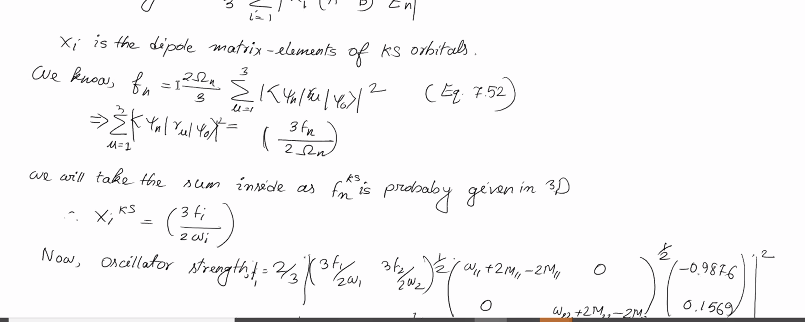 3 i=1
Xi is the dipole matrix-elements of KS orbitals.
We know, fn = 2Ωn/3 Σ(μ=1 to 3) |<ψn|rμ|ψ0>|² (Eq. 7.52)
⇒ Σ(μ=1 to 3) |<ψn|rμ|ψ0>|² = (3fn/2Ωn)
we will take the sum inside as fn^KS is probaby given in 3D
∴ Xi^KS = (3fi/2ωi)
Now, oscillator strength, f1 = 2/3 |(3f1/2ω1 3f2/2ω2)^1/2 (ω11+2M11-2M11 0)^1/2 (-0.9876)|²
0 ω22+2M22-2M 0.1569